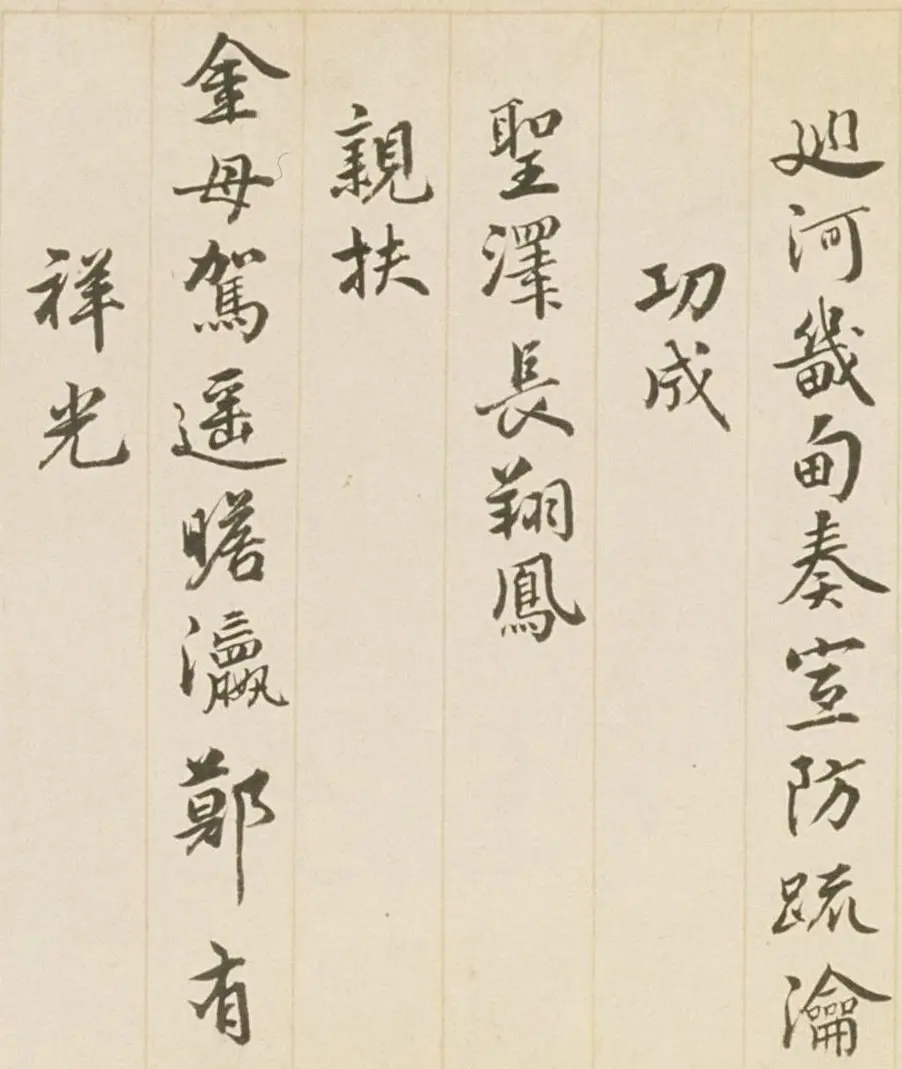 廵河畿甸奏宣防疏瀹
功成
聖澤長翔鳳
親扶
金母駕遥瞻瀛鄚有
祥光